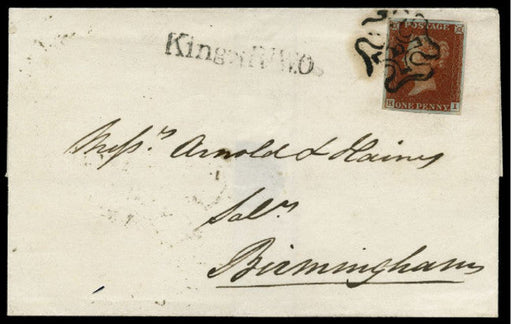 POSTAGE
ONE PENNY
Messrs. Arnold & Haines
Solrs
Birmingham